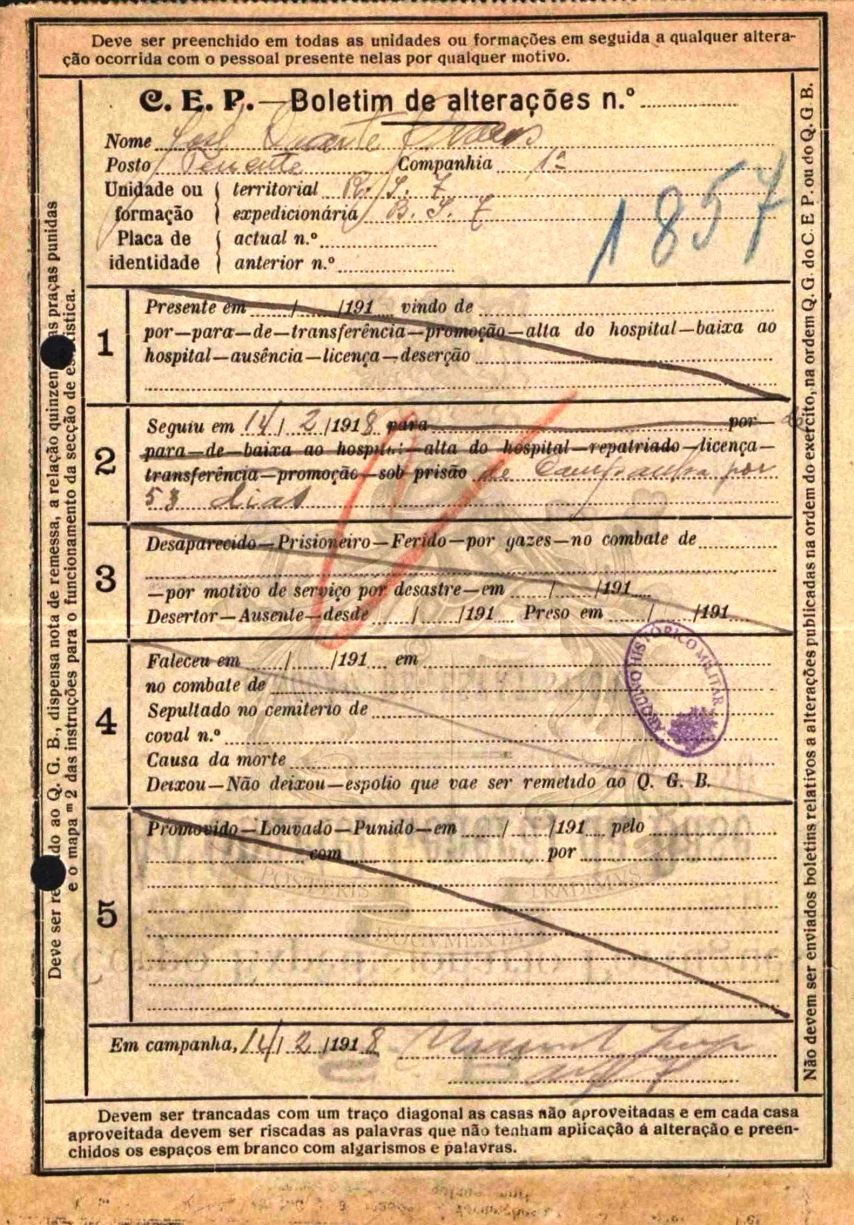 Deve ser preenchido em todas as unidades ou formações em seguida a qualquer altera-
ção ocorrida com o pessoal presente nelas por qualquer motivo.
C. E. P.—Boletim de alterações n.º
Nome José Duarte
Posto Tenente Companhia 1ª
Unidade ou territorial R. I. 7
formação expedicionária B. I. 7
Placa de actual n.º
identidade anterior n.º
1857
1
Presente em / /191 vindo de
por—para—de—transferência—promoção—alta do hospital—baixa ao
hospital—ausência—licença—deserção
2
Seguiu em 14/2/1918 para por—
para—de—baixa ao hospital—alta do hospital—repatriado—licença—
transferência—promoção—sob prisão de Campanha por
53 dias
3
Desaparecido—Prisioneiro—Ferido—por gazes—no combate de
—por motivo de serviço por desastre—em / /191
Desertor—Ausente—desde / /191 Preso em / /191
4
Faleceu em / /191 em
no combate de
Sepultado no cemiterio de
coval n.º
Causa da morte
Deixou—Não deixou—espolio que vae ser remetido ao Q. G. B.
ARQUIVO HISTÓRICO MILITAR
5
Promovido—Louvado—Punido—em / /191 pelo
com por
POSTERIS TRADIMVS
DOCVMENTA
Em campanha, 14/2/1918
Devem ser trancadas com um traço diagonal as casas não aproveitadas e em cada casa
aproveitada devem ser riscadas as palavras que não tenham aplicação á alteração e preen-
chidos os espaços em branco com algarismos e palavras.
Deve ser ao Q. G. B., dispensa nota de remessa, a relação praças punidas
e o mapa nº 2 das instruções para o funcionamento da secção de
Não devem ser enviados boletins relativos a alterações publicadas na ordem do exercito, na ordem Q. G. do C. E. P. ou do Q. G. B.